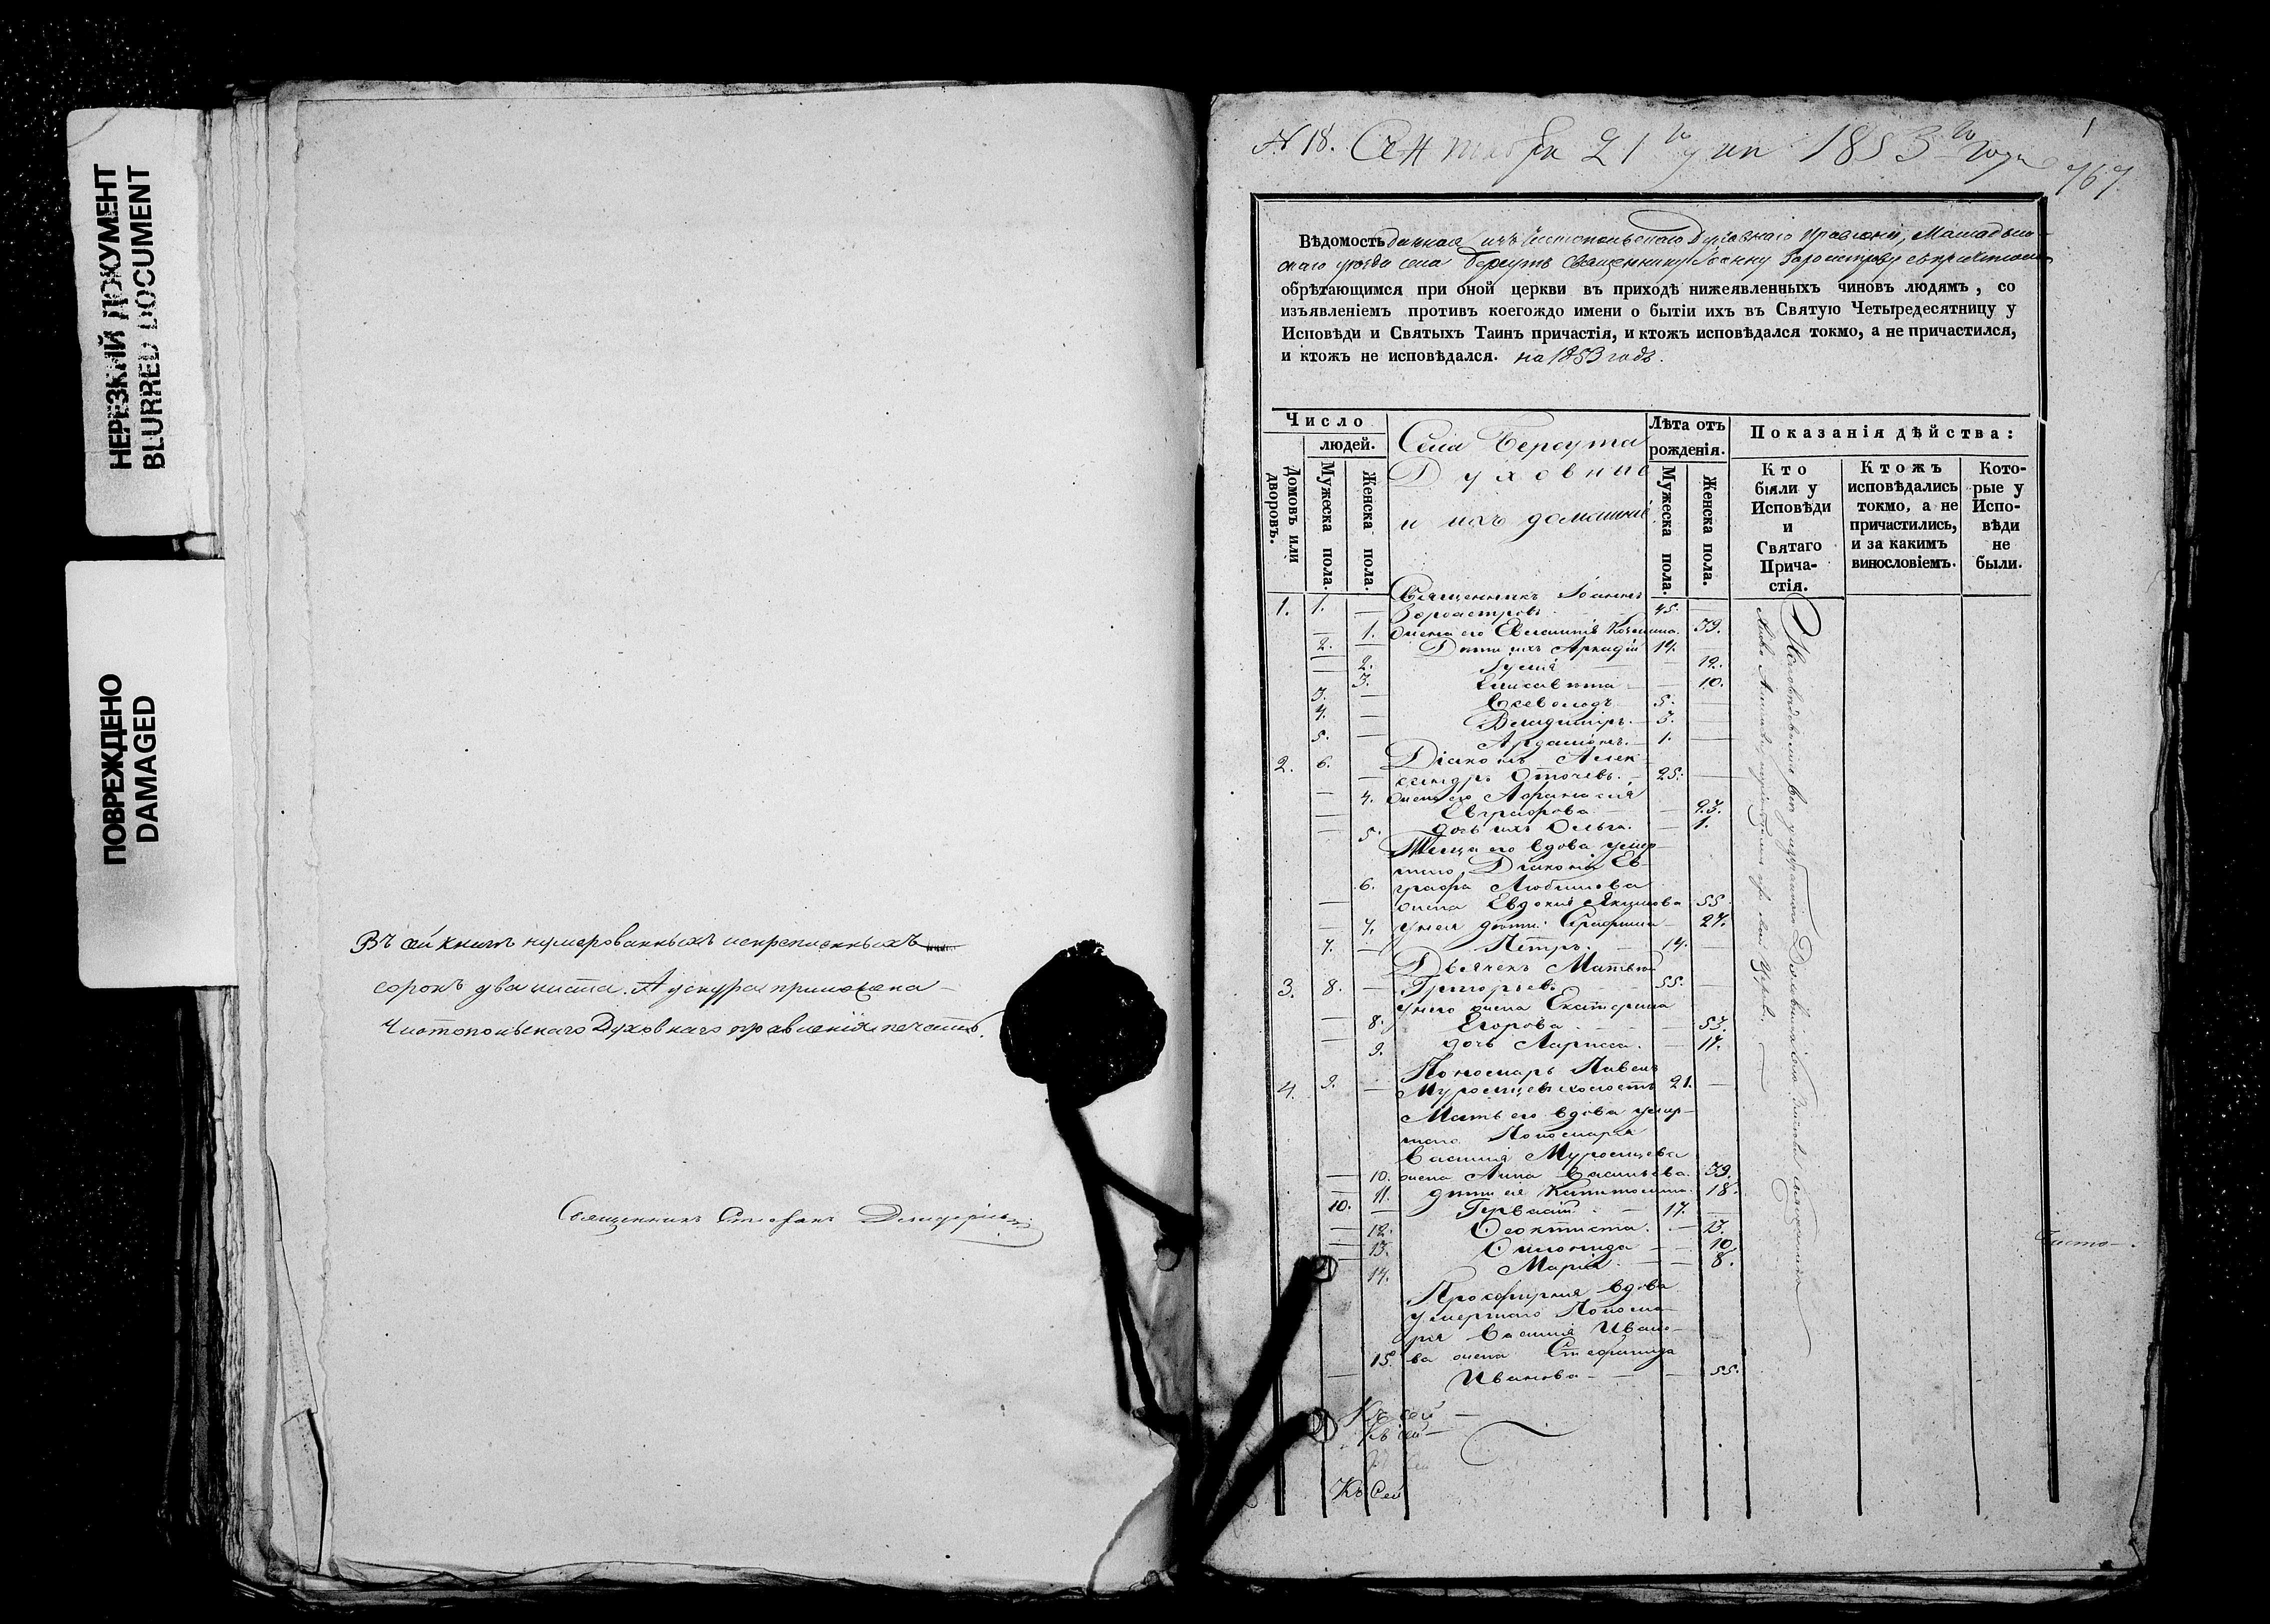 НЕРЕЗКИЙ ДОКУМЕНТ
BLURRED DOCUMENT
ПОВРЕЖДЕНО
DAMAGED
Въ сей книгѣ нумерованныхъ искрепленныхъ
сорокъ два листа. А у снура приложена
Чистопольскаго Духовнаго правленія печать.
Священникъ Стефанъ
№ 18. Сентября 21го дня 1853го года
1
767
Вѣдомость данная изъ Чистопольскаго Духовнаго Правленія, Мамадыш-
скаго уѣзда села Берсутъ Священнику Іоанну Зороастрову съ причтомъ
обрѣтающимся при оной церкви въ приходѣ нижеявленныхъ чиновъ людямъ, со
изъявленіемъ противъ коегождо имени о бытіи ихъ въ Святую Четыредесятницу у
Исповѣди и Святыхъ Таинъ причастія, и ктожъ исповѣдался токмо, а не причастился,
и ктожъ не исповѣдался. на 1853 годъ.
Число
людей.
Домовъ или дворовъ.
Мужеска пола.
Женска пола.
Села Берсута
Духовные
и ихъ домашніе
Лѣта отъ
рожденія.
Мужеска пола.
Женска пола.
Показанія дѣйства:
Кто
были у
Исповѣди
и
Святаго
Прича-
стія.
Ктожъ
исповѣдались
токмо, а не
причастились,
и за какимъ
винословіемъ.
Кото-
рые у
Испо-
вѣди
не
были.
Священникъ Іоаннъ
1. 1. — Зороастровъ 45. —
— 1. жена его Евлампія Козьмина. 39.
2. — Дѣти ихъ Аркадій 14. —
— 2. Лидія — 12.
— 3. Елисавета — 10.
3. — Всеволодъ 5. —
4. — Владиміръ. 3. —
5. — Ардаліонъ. 1. —
2. 6. Діаконъ Алек-
— сандръ Оточевъ. 25. —
— 4. жена его Афанасія
Евграфова — 23.
— 5. дочь ихъ Ольга. — 1.
Теща его вдова умер-
шаго Діакона Ев-
6. графа Любимова
— жена Евдокія Якимова 55
— 7. у нея дѣти: Серафима 27.
7. — Петръ. — 14. —
Дьячекъ Матвѣй
3. 8. — Григорьевъ. 55. —
у него жена Екатерина
— 8. Егорова — 53.
— 9. дочь Лариса. — 17.
Пономарь Павелъ
4. 9. — Муромцевъ холостъ 21. —
Мать его вдова умер-
шаго Пономаря
Василія Муромцева
— 10. жена Анна Васильева. 39.
— 11. дѣти ея Капитолина. 18.
10. — Гервасій — 17. —
— 12. Феоктиста. — 13.
— 13. — 10
14. Марія. — 8.
Просфирня вдова
умершаго Понома-
ря Василія Ивано-
15. ва жена Стефанида
— Иванова — — 55.
Къ сей —
Къ сей —
Къ Сей